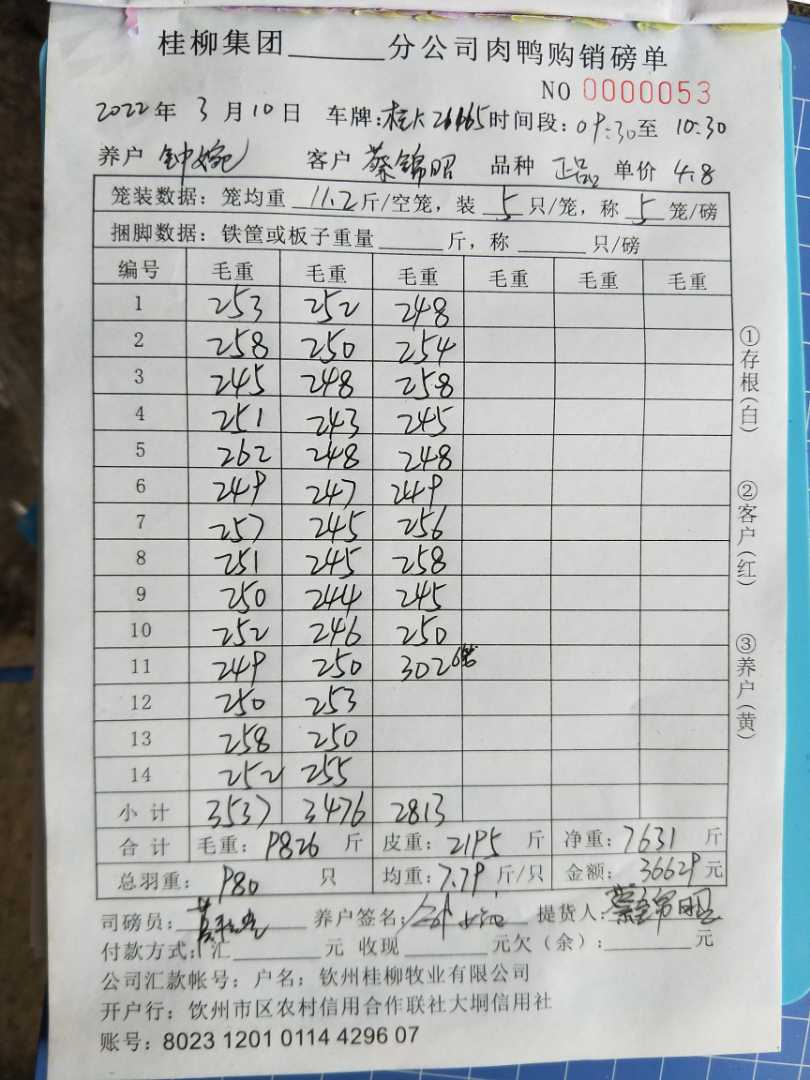 桂柳集团______分公司肉鸭购销磅单
NO 0000053
2022年 3月10日 车牌:桂 时间段:09:30至 10:30
养户 钟婉 客户 蔡锦昭 品种 正品 单价 4.8
笼装数据:笼均重 11.2斤/空笼,装 5 只/笼,称 5 笼/磅
捆脚数据:铁筐或板子重量______斤,称______只/磅
编号 毛重 毛重 毛重 毛重 毛重 毛重
1 253 252 248
2 258 250 254
3 245 248 258
4 251 243 245
5 262 248 248
6 249 247 249
7 257 245 256
8 251 245 258
9 250 244 245
10 252 246 250
11 249 250 302 6笼
12 250 253
13 258 250
14 252 255
小计 3537 3476 2813
合计 毛重:9826 斤 皮重:2195 斤 净重:7631 斤
总羽重:980 只 均重:7.79斤/只 金额:36629元
司磅员: 养户签名: 提货人:蔡锦昭
付款方式:汇______元 收现______元欠(余):______元
公司汇款帐号:户名:钦州桂柳牧业有限公司
开户行:饮州市区农村信用合作联社大垌信用社
账号:8023 1201 0114 4296 07
①存根(白)
②客户(红)
③养户(黄)